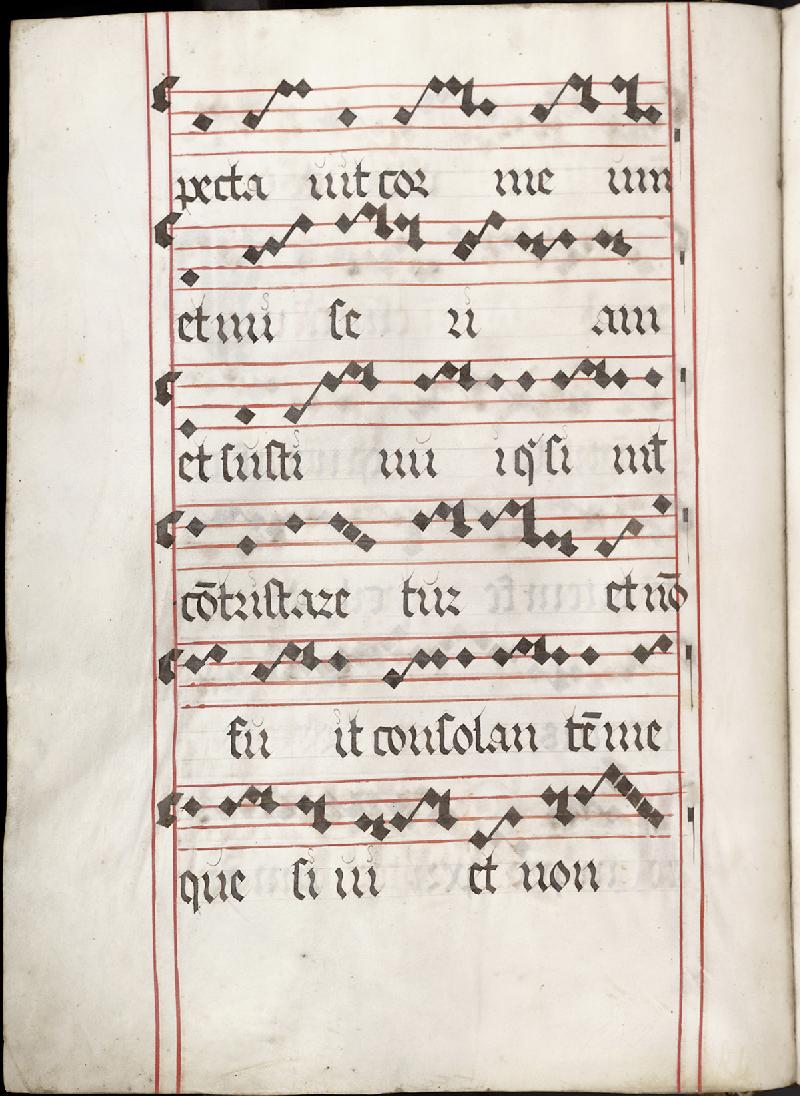 pecta uit cor me um
et mi se ri am
et susti nui i qͥ si mͥt
cō tristare tur et nō
fu it consolan tē me
que si ui et non